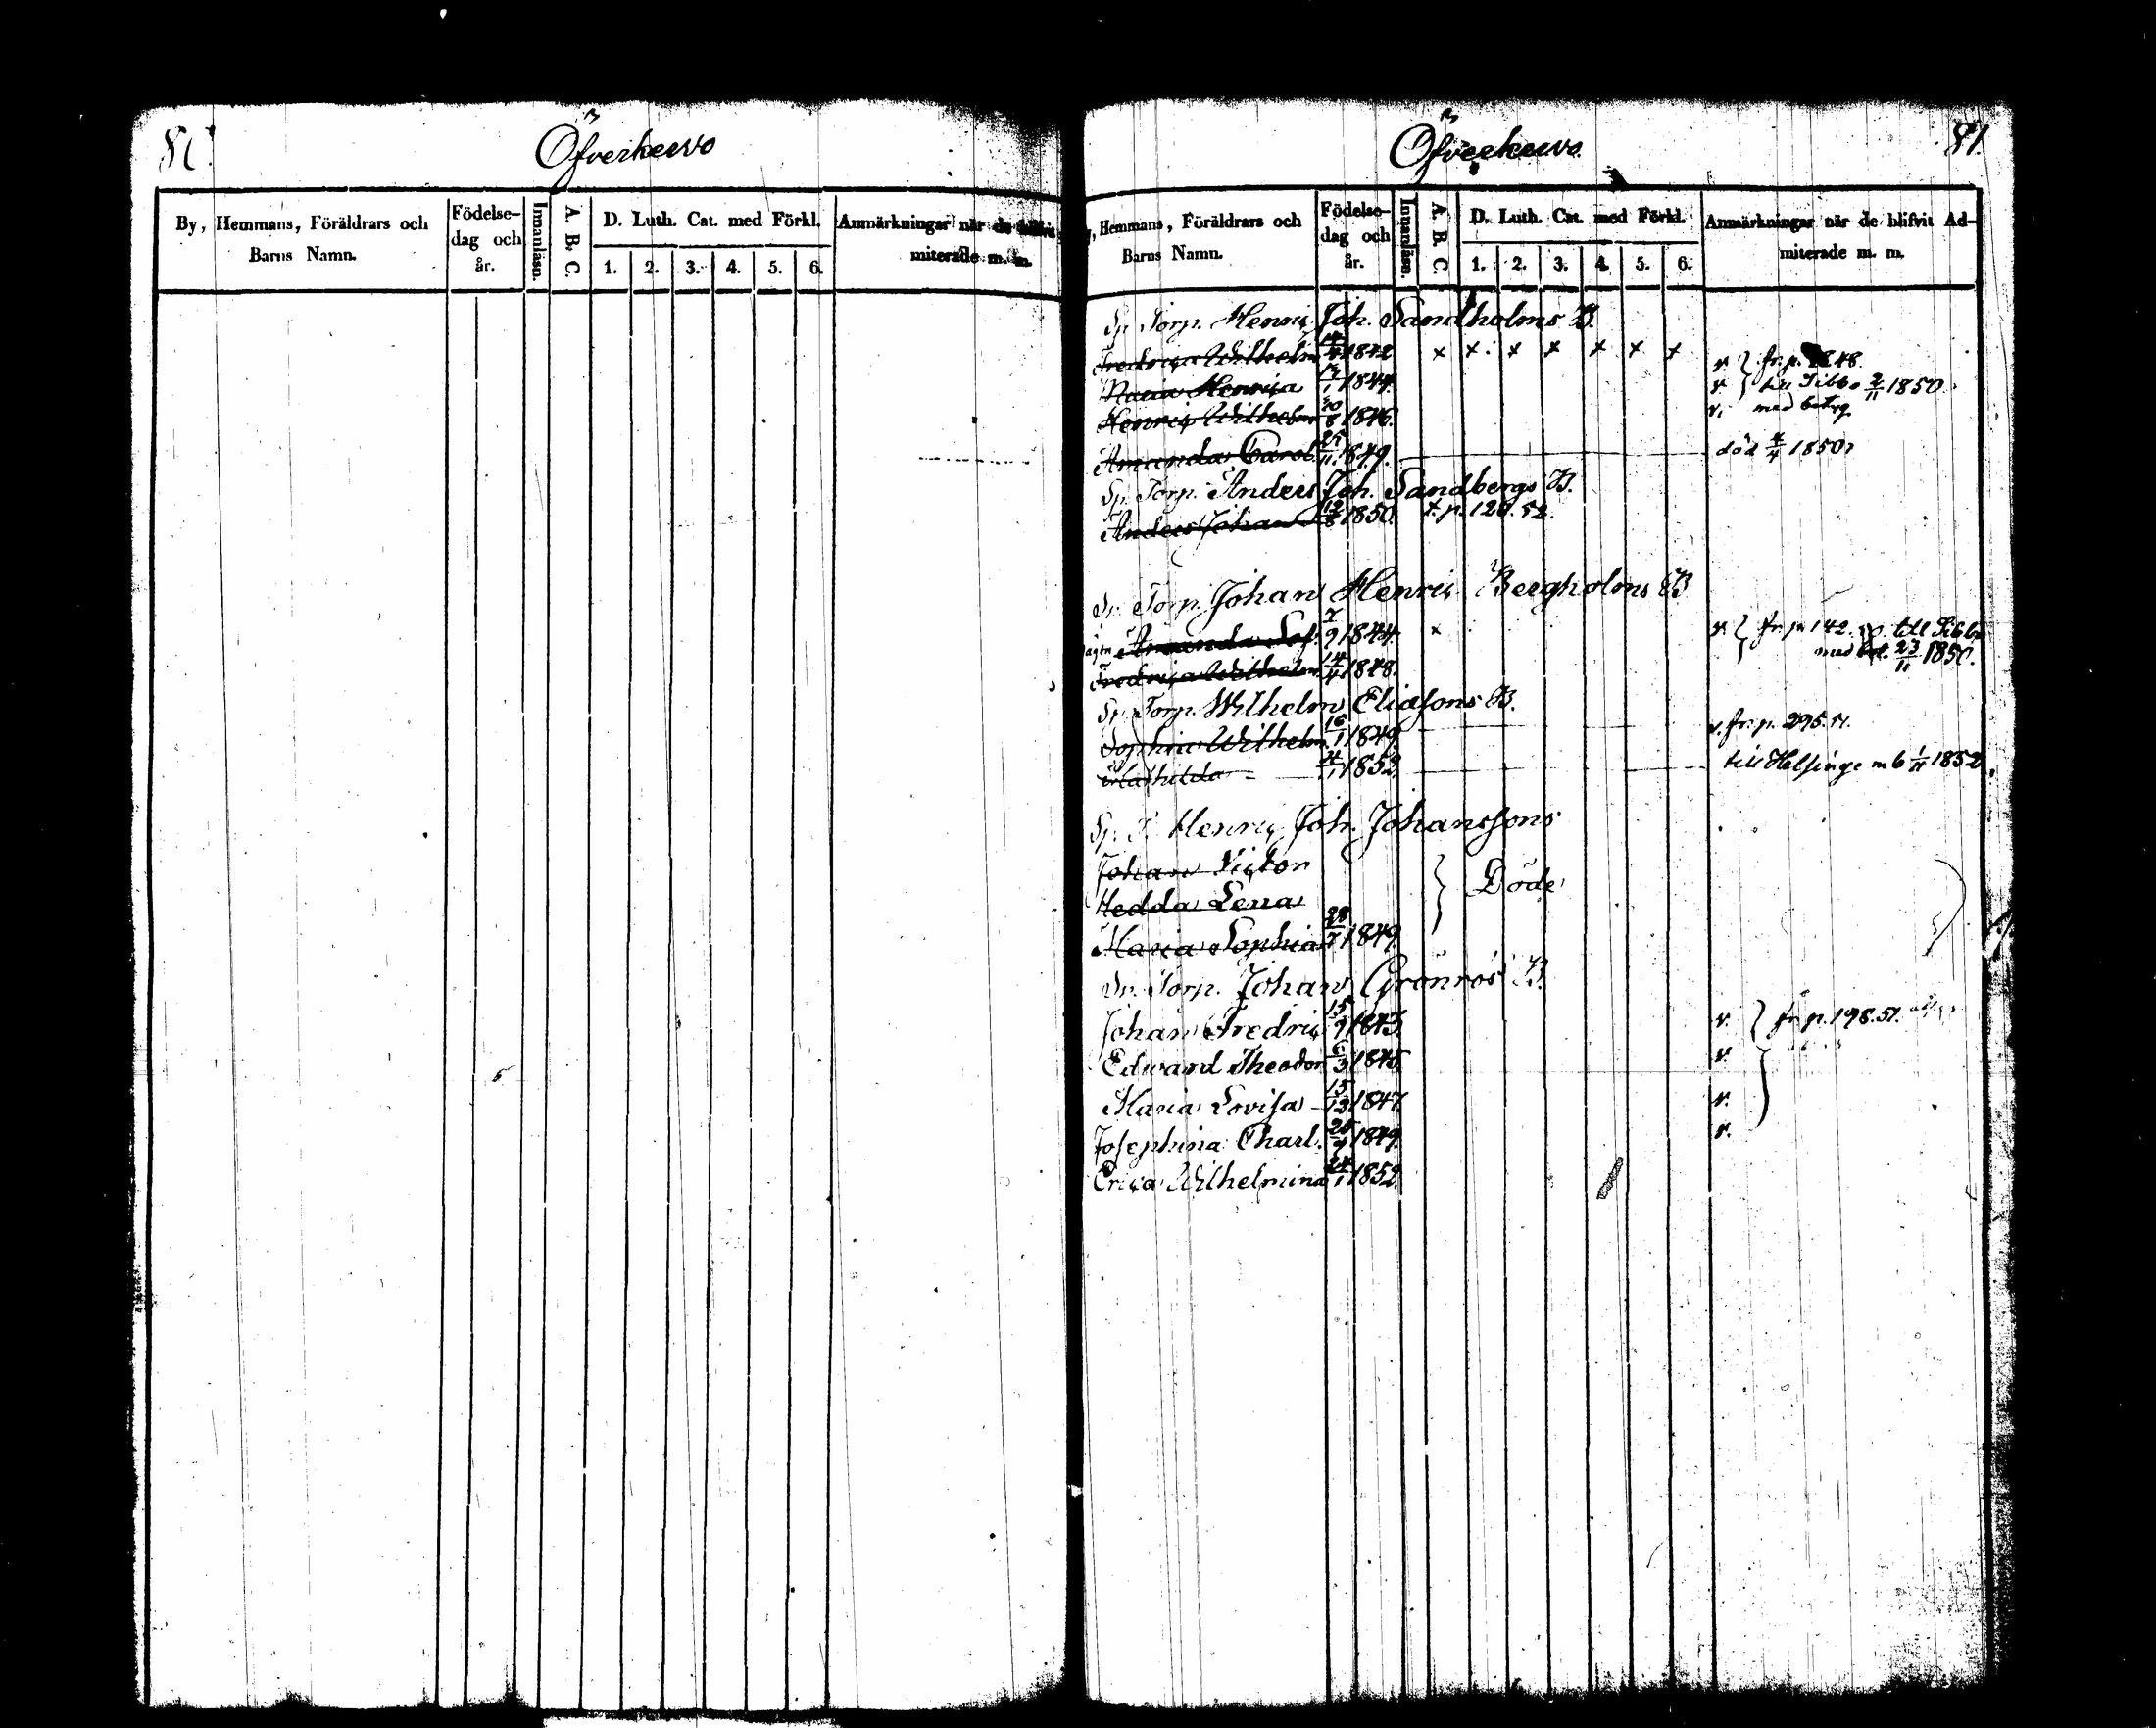 80.
Öfverkervo
By, Hemmans, Föräldrars och
Barns Namn.
Födelse-
dag och
år.
Innanläsn.
A. B. C.
D. Luth. Cat. med Förkl.
1. 2. 3. 4. 5. 6.
Anmärkningar när de blifvit
miterade m. m.
Öfverkervo
81.
Hemmans, Föräldrars och
Barns Namn.
Födelse-
dag och
år.
Innanläsn.
A. B. C.
D. Luth. Cat. med Förkl.
1. 2. 3. 4. 5. 6.
Anmärkningar när de blifvit Ad-
miterade m. m.
Sp. Torp. Henric Joh. Sandholms B.
Fredrica Wilhelm. 1842 x x x x x x x v. fr. p. 48.
Maria Henrica 1844. v. till Sibbo 2/11 1850.
Henric Wilhelm 1846. v. med betyg
Amanda Carol. 25/11 1849. död 4/4 1850
Sp. Torp. Anders Joh. Sandbergs B.
Anders Johan 12/8 1850. t. p. 52.
Sp. Torp. Johan Henric Bergholms B
Amanda Sof. 7/9 1844. x v. fr. p. 142. till Sibbo
med bet. 23/11 1850.
Fredrica Wilhelm. 14/4 1848.
Sp. Torp. Wilhelm Eliasons B.
Sophia Wilhelm. 16/1 1849. v. fr. p. 295. 51.
Mathilda 4/1 1852. till Helsinge m b 1/11 1852
Sp. T. Henric Joh. Johanssons
Johan Victor
Hedda Lena Döde
Maria Sophia 28/7 1849.
Sp. Torp. Johan Grönros B.
Johan Fredric 15/9 1843. v. fr. p. 198. 51.
Edward Theodor 6/3 1845. v.
Maria Lovisa 15/12 1847. v.
Josephina Charl. 25/9 1849. v.
Erica Wilhelmina 24/1 1852.